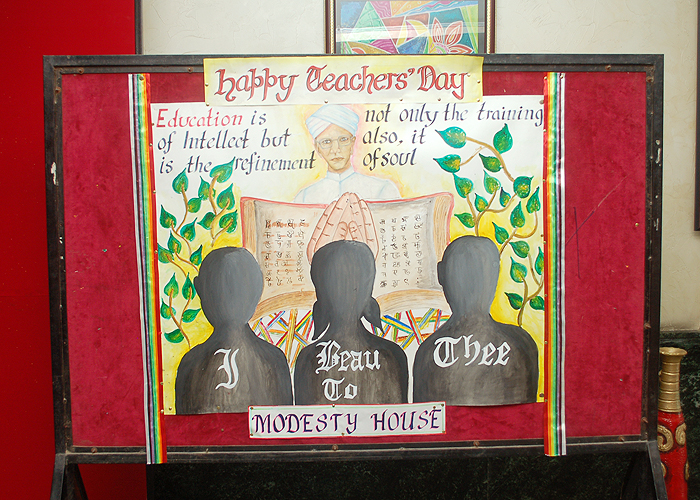 happy Teachers' Day
Education is not only the training
of Intellect but also, it
is the refinement of soul
I Beau Thee
To
MODESTY HOUSE